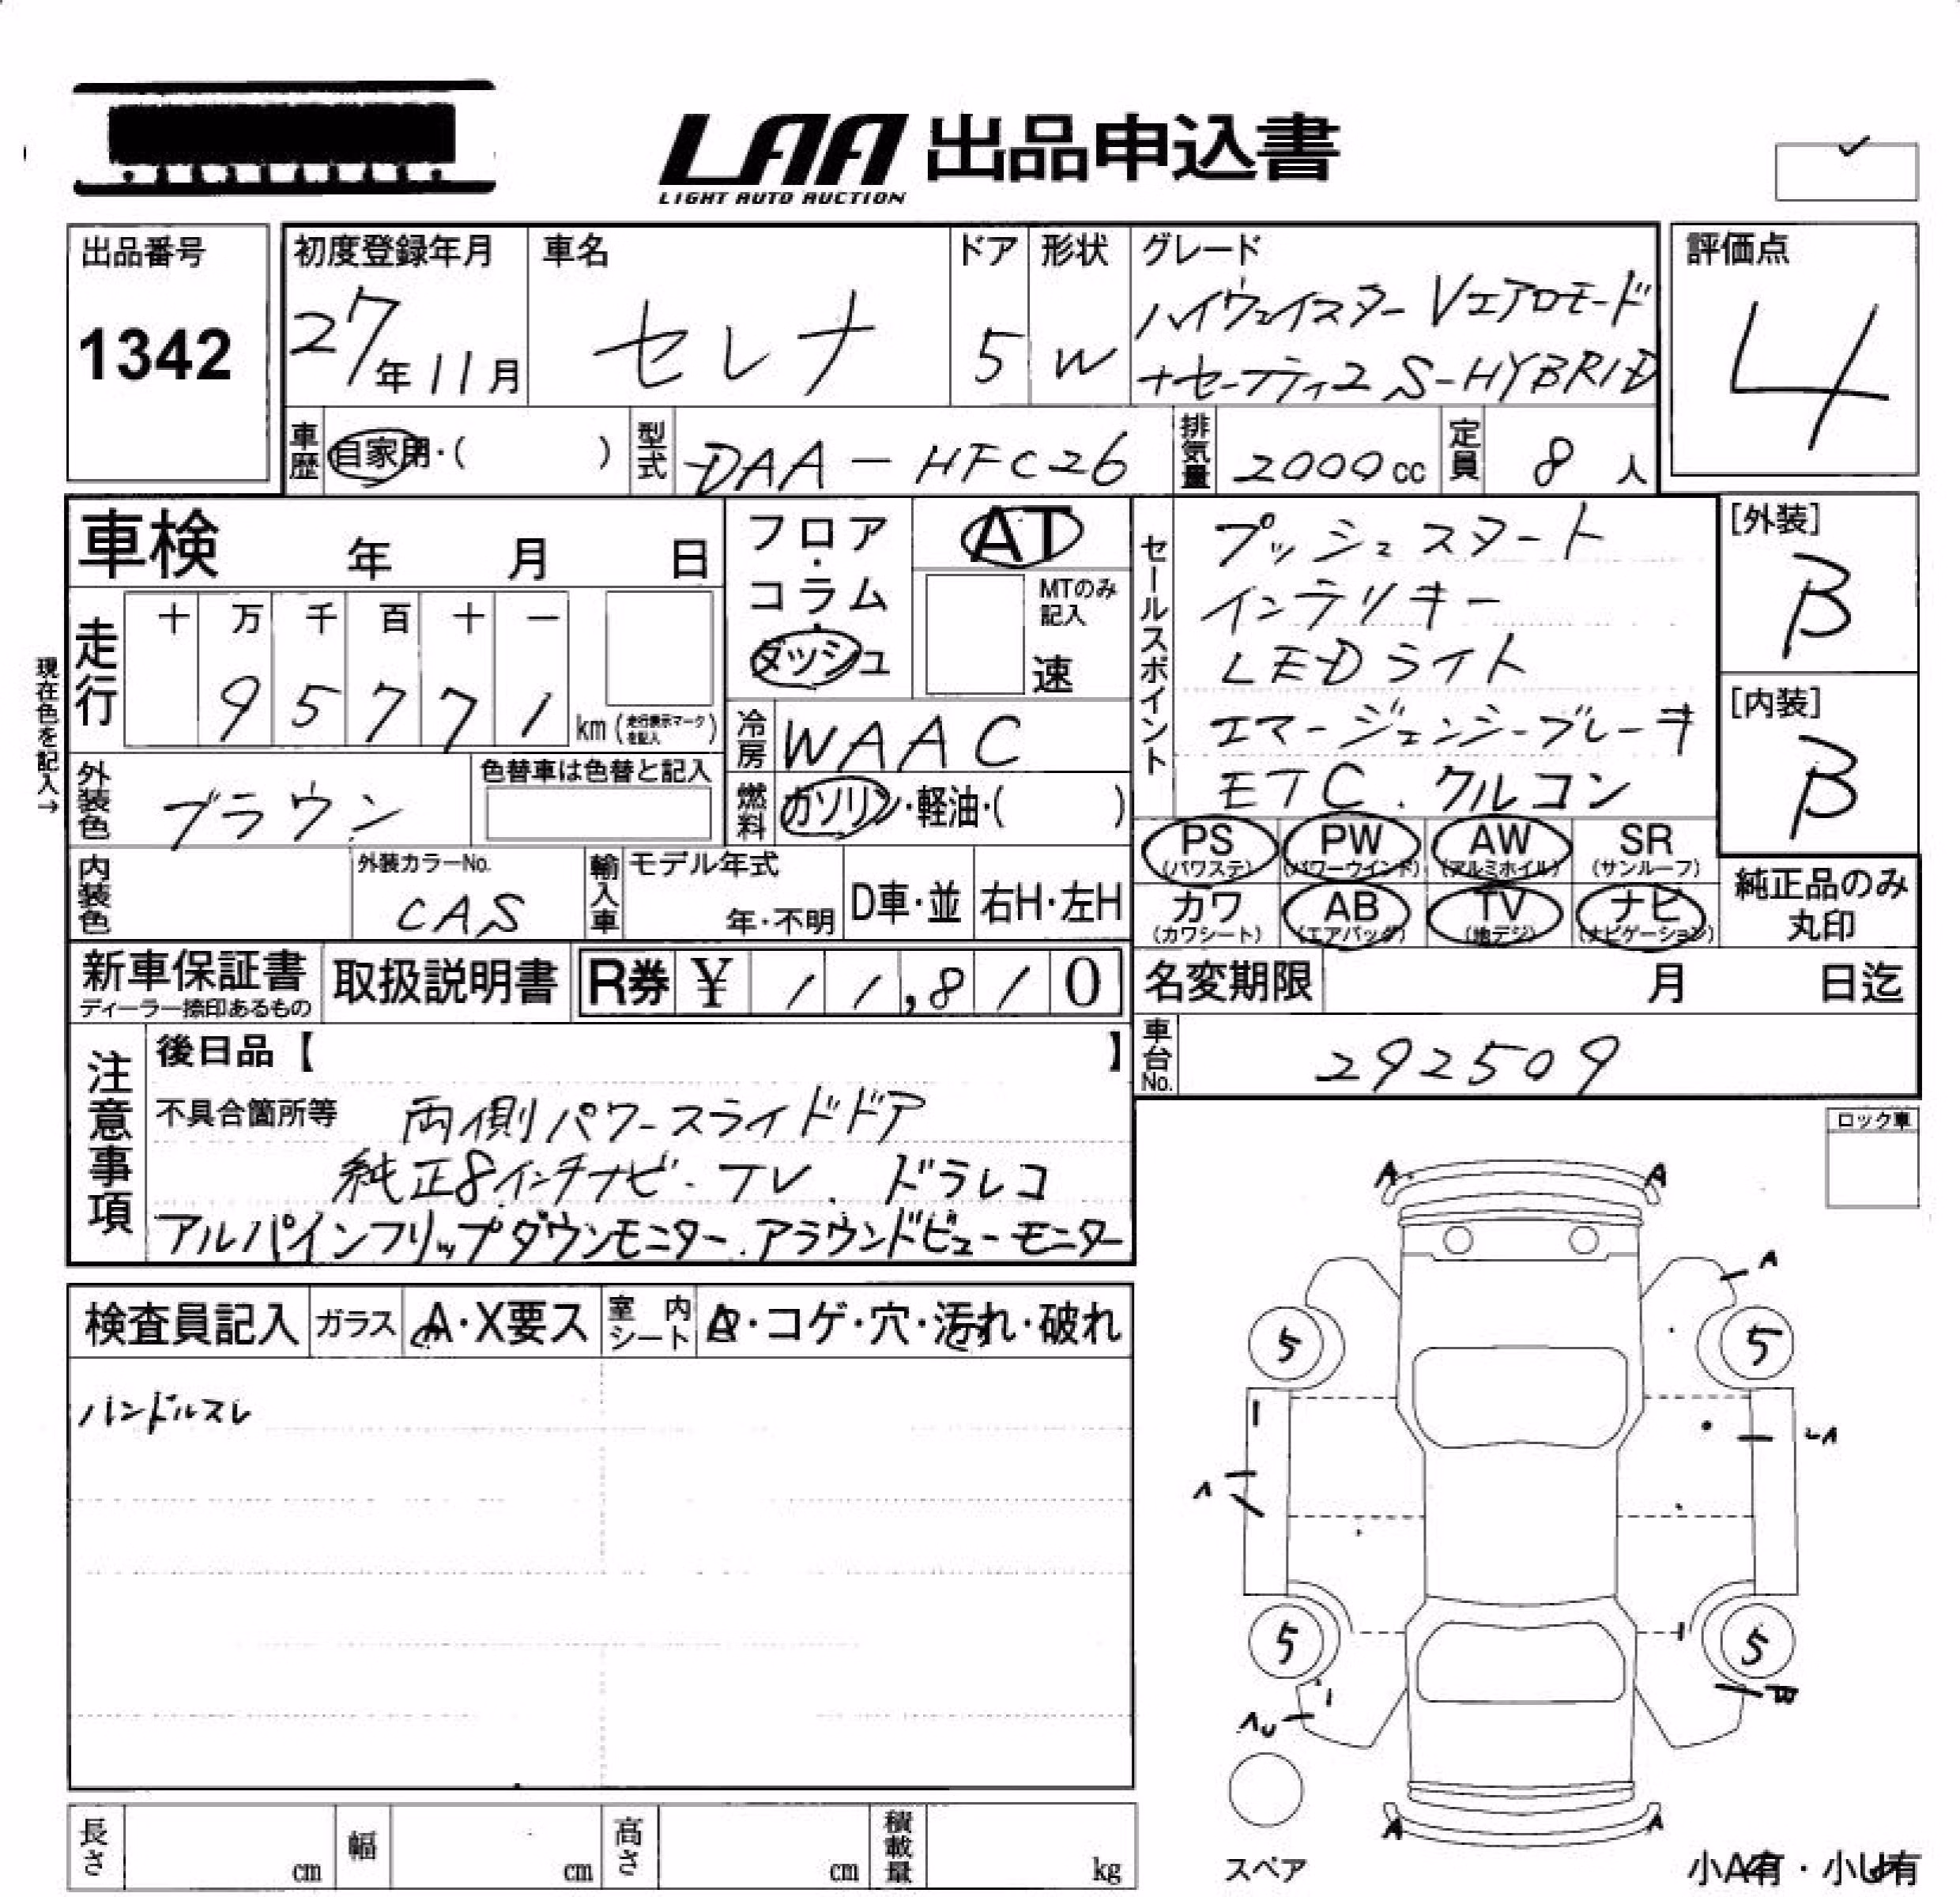 LAA 出品申込書
LIGHT AUTO AUCTION
出品番号
1342
初度登録年月
27年11月
車名
セレナ
ドア
5
形状
W
グレード
ハイウェイスター Vエアロモード
+セーフティ2 S-HYBRID
評価点
4
車歴 自家用・( )
型式 DAA-HFC26
排気量 2000cc
定員 8人
車検 年 月 日
フロア・コラム・ダッシュ
AT
MTのみ記入
速
セールスポイント
プッシュスタート
インテリキー
LEDライト
エマージェンシーブレーキ
ETC、クルコン
[外装]
B
[内装]
B
現在色を記入→
走行
十 万 千 百 十 一
9 5 7 7 1 km (走行表示マークを記入)
冷房 WAAC
外装色 ブラウン
色替車は色替と記入
燃料 ガソリン・軽油・( )
PS (パワステ)
PW (パワーウインド)
AW (アルミホイル)
SR (サンルーフ)
カワ (カワシート)
AB (エアバッグ)
TV (地デジ)
ナビ (ナビゲーション)
純正品のみ丸印
内装色
外装カラーNo.
CAS
輸入車 モデル年式
年・不明
D車・並
右H・左H
新車保証書
ディーラー捺印あるもの
取扱説明書
R券 ¥ 11,810
名変期限 月 日迄
車台No. 292509
注意事項
後日品【 】
不具合箇所等 両側パワースライドドア
純正8インチナビ・TV、ドラレコ
アルパインフリップダウンモニター、アラウンドビューモニター
ロック車
検査員記入
ガラス A・X要ス
室内シート A・コゲ・穴・汚れ・破れ
ハンドルスレ
A A
A
5 5
A
5 5
A A
スペア
小A有・小U有
長さ cm
幅 cm
高さ cm
積載量 kg